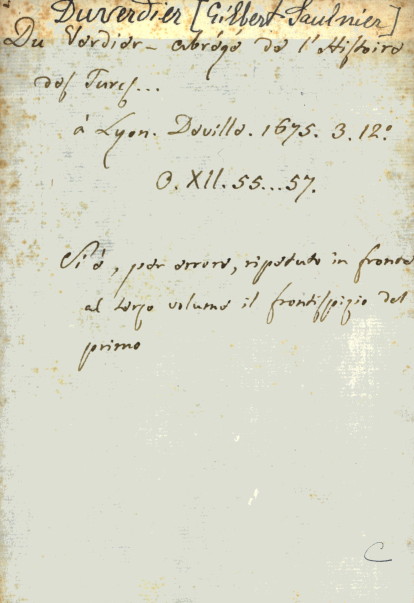 Duverdier [Gilbert Saulnier]
Du Verdier - abrégé de l'Histoire
des Turcs...
à Lyon. Deville. 1675. 3. 12º
O. XII. 55...57.
Si è, per errore, ripetuto in fronte
al terzo volume il frontispizio del
primo
C